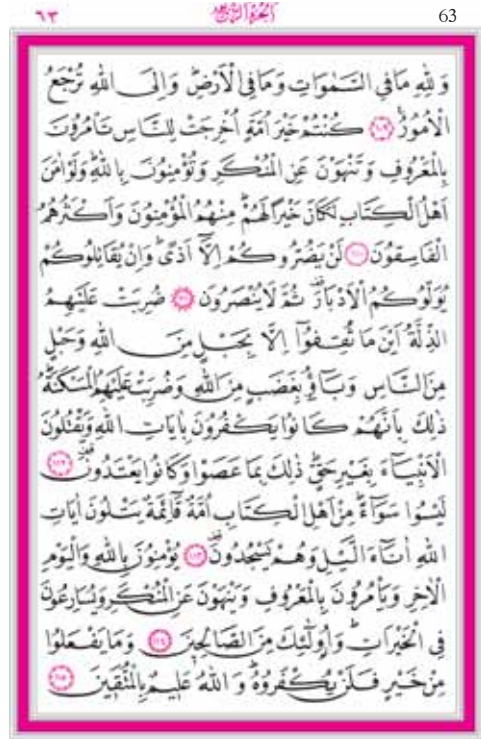 ٦٣ الجزؤ الرابع 63
وَلِلّٰهِ مَا فِي السَّمٰوَاتِ وَمَا فِي الْاَرْضِۜ وَاِلَى اللّٰهِ تُرْجَعُ
الْاُمُورُ۟ ﴿١٠٩﴾ كُنْتُمْ خَيْرَ اُمَّةٍ اُخْرِجَتْ لِلنَّاسِ تَأْمُرُونَ
بِالْمَعْرُوفِ وَتَنْهَوْنَ عَنِ الْمُنْكَرِ وَتُؤْمِنُونَ بِاللّٰهِۜ وَلَوْ اٰمَنَ
اَهْلُ الْكِتَابِ لَكَانَ خَيْرًا لَهُمْۜ مِنْهُمُ الْمُؤْمِنُونَ وَاَكْثَرُهُمُ
الْفَاسِقُونَ ﴿١١٠﴾ لَنْ يَضُرُّوكُمْ اِلَّٓا اَذًىۜ وَاِنْ يُقَاتِلُوكُمْ
يُوَلُّوكُمُ الْاَدْبَارَ۠ ثُمَّ لَا يُنْصَرُونَ ﴿١١١﴾ ضُرِبَتْ عَلَيْهِمُ
الذِّلَّةُ اَيْنَ مَا ثُقِفُٓوا اِلَّا بِحَبْلٍ مِنَ اللّٰهِ وَحَبْلٍ
مِنَ النَّاسِ وَبَٓاؤُ۫ بِغَضَبٍ مِنَ اللّٰهِ وَضُرِبَتْ عَلَيْهِمُ الْمَسْكَنَةُۜ
ذٰلِكَ بِاَنَّهُمْ كَانُوا يَكْفُرُونَ بِاٰيَاتِ اللّٰهِ وَيَقْتُلُونَ
الْاَنْبِيَٓاءَ بِغَيْرِ حَقٍّۜ ذٰلِكَ بِمَا عَصَوْا وَكَانُوا يَعْتَدُونَ۠ ﴿١١٢﴾
لَيْسُوا سَوَٓاءًۜ مِنْ اَهْلِ الْكِتَابِ اُمَّةٌ قَٓائِمَةٌ يَتْلُونَ اٰيَاتِ
اللّٰهِ اٰنَٓاءَ الَّيْلِ وَهُمْ يَسْجُدُونَ۠ ﴿١١٣﴾ يُؤْمِنُونَ بِاللّٰهِ وَالْيَوْمِ
الْاٰخِرِ وَيَأْمُرُونَ بِالْمَعْرُوفِ وَيَنْهَوْنَ عَنِ الْمُنْكَرِ وَيُسَارِعُونَ
فِي الْخَيْرَاتِۜ وَاُو۬لٰٓئِكَ مِنَ الصَّالِحِينَ ﴿١١٤﴾ وَمَا يَفْعَلُوا
مِنْ خَيْرٍ فَلَنْ يُكْفَرُوهُۜ وَاللّٰهُ عَلِيمٌ بِالْمُتَّقِينَ ﴿١١٥﴾